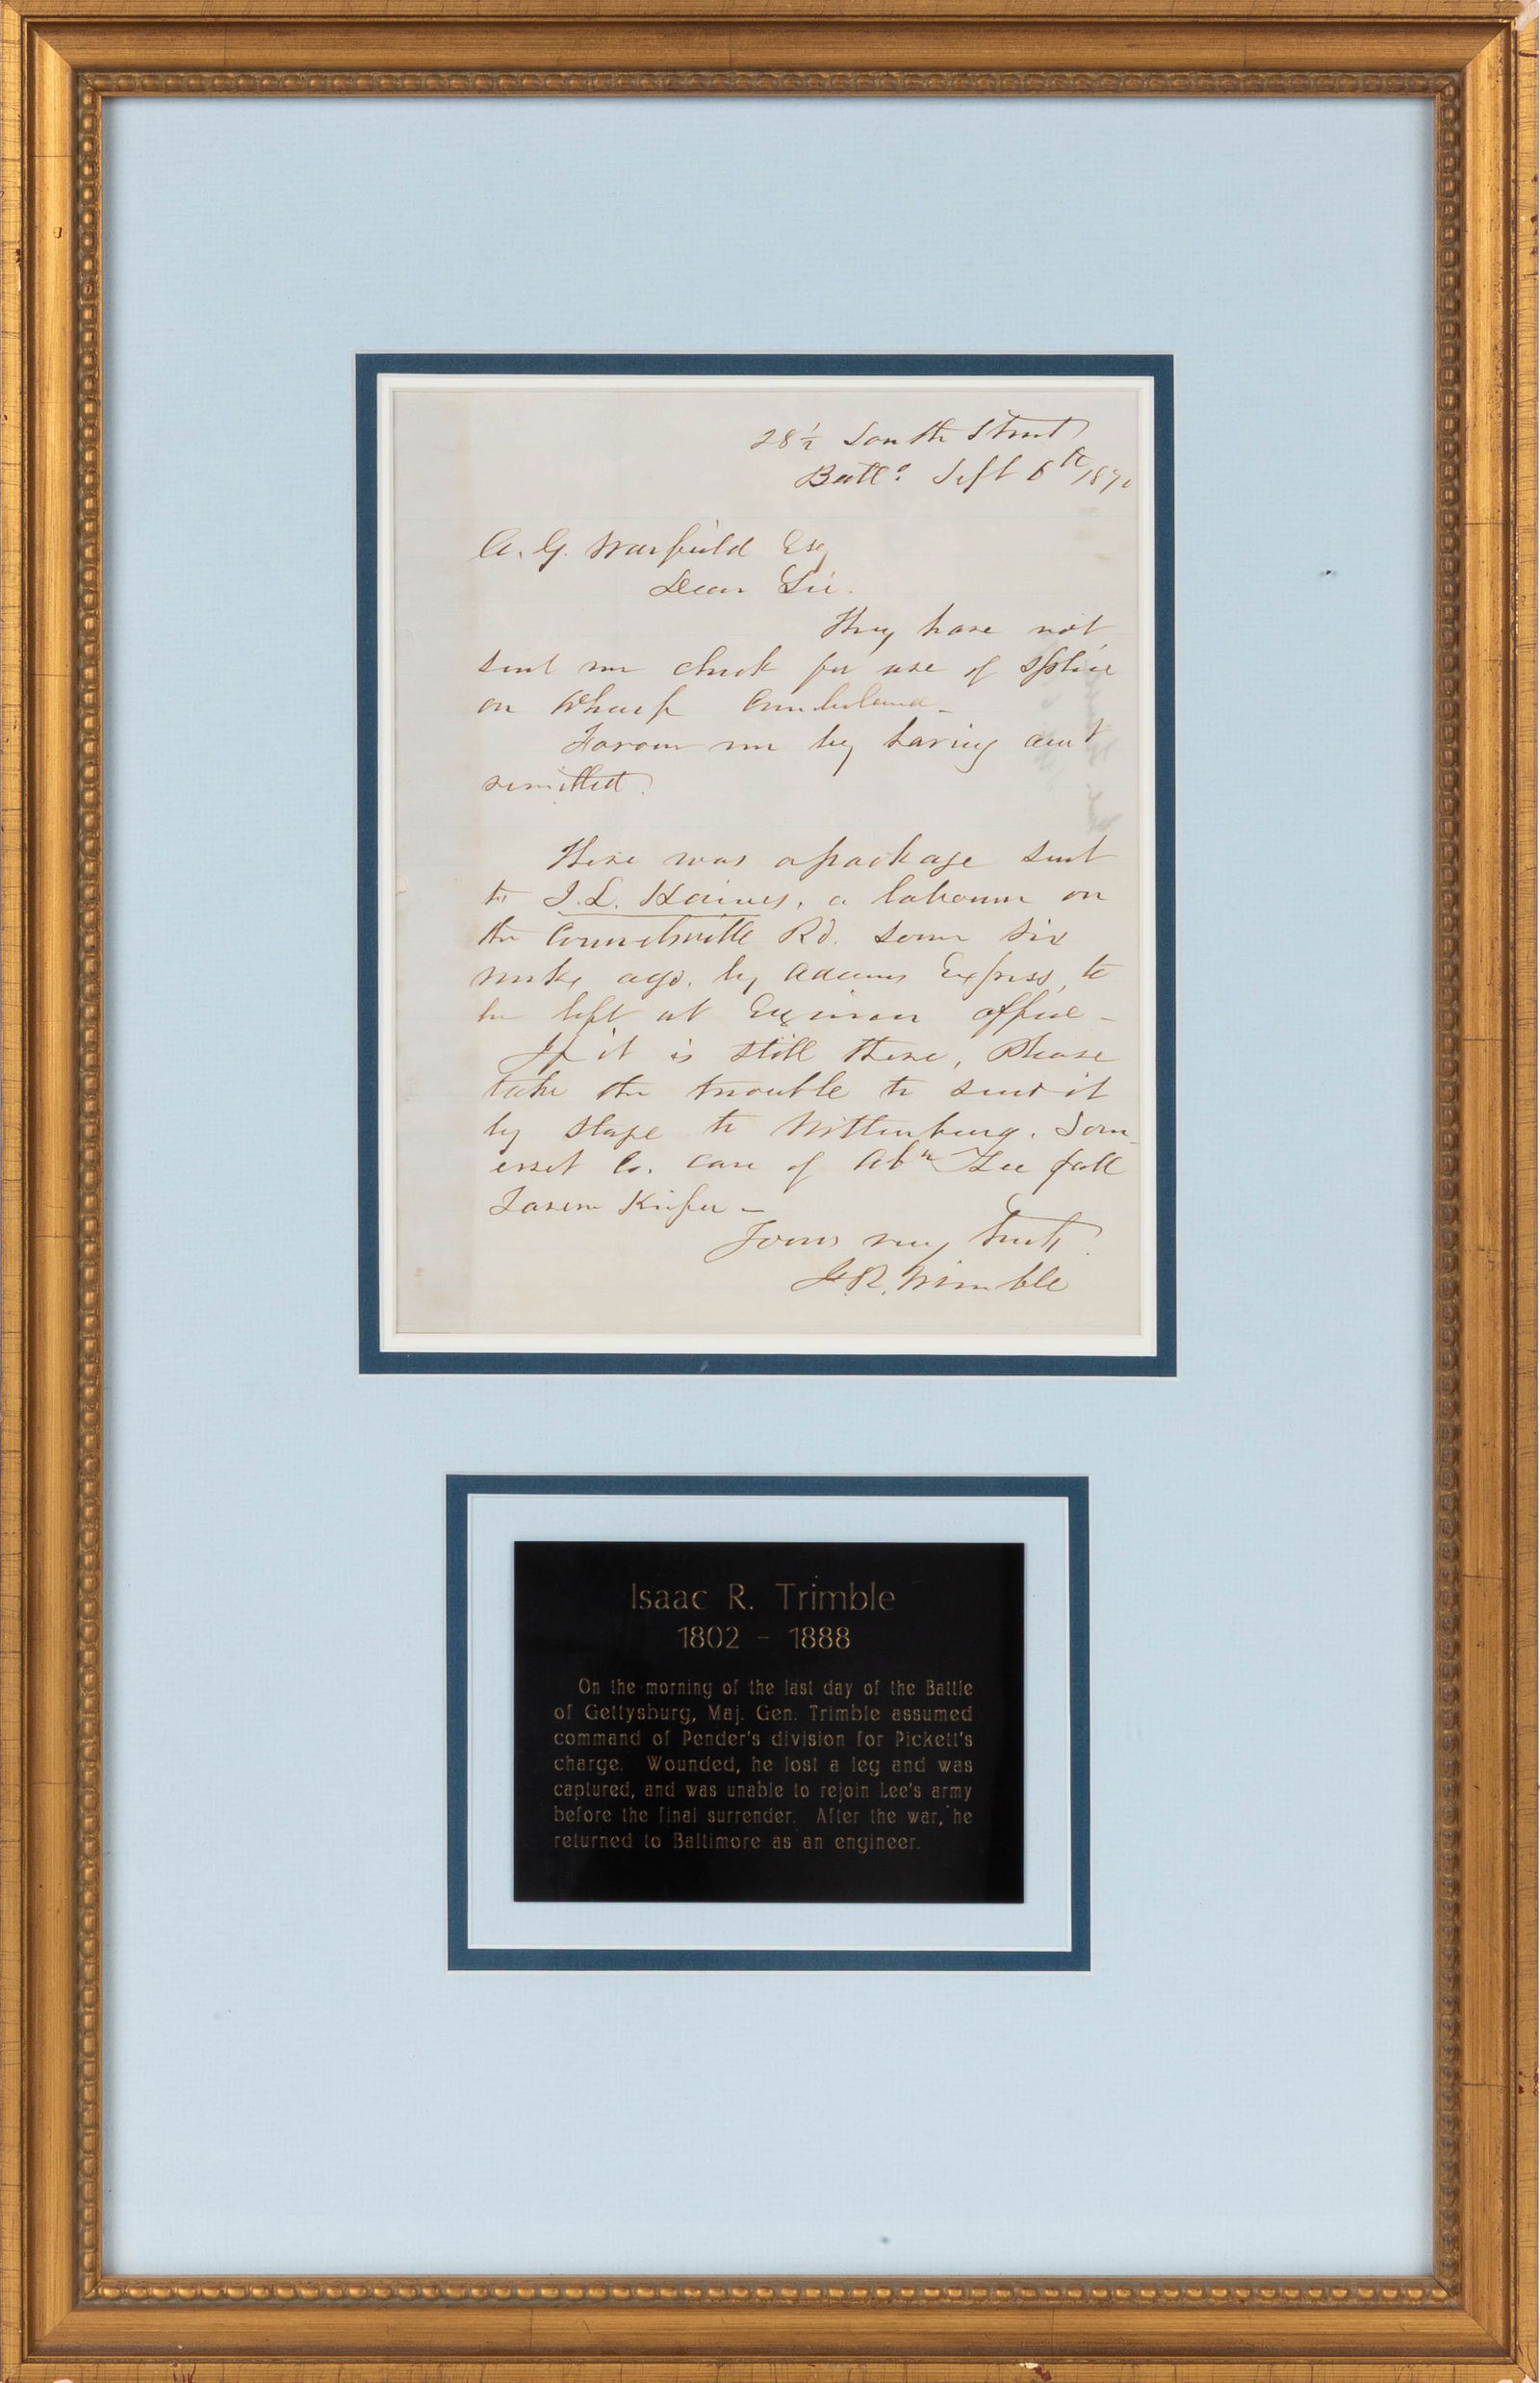 28½ South Street
Balto. Sept 6th 1870
A. G. Warfield Esq
Dear Sir.
They have not
sent me check for use of
on Wharf Cumberland -
Favour me by having amt
remitted.
There was a package sent
to J. L. Haines, a labourer on
the Connelsville Rd. some six
weeks ago, by Adams Express, to
be left at Engineer office -
If it is still there, Please
take the trouble to send it
by stage to Wittenburg. Som-
erset Co. care of Abm Lee
Tavern Keeper -
Yours very truly
I. R. Trimble
Isaac R. Trimble
1802 - 1888
On the morning of the last day of the Battle
of Gettysburg, Maj. Gen. Trimble assumed
command of Pender's division for Pickett's
charge. Wounded, he lost a leg and was
captured, and was unable to rejoin Lee's army
before the final surrender. After the war, he
returned to Baltimore as an engineer.